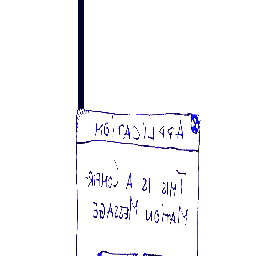 APPLICATION
THIS IS A CONFIR-
MATION MESSAGE